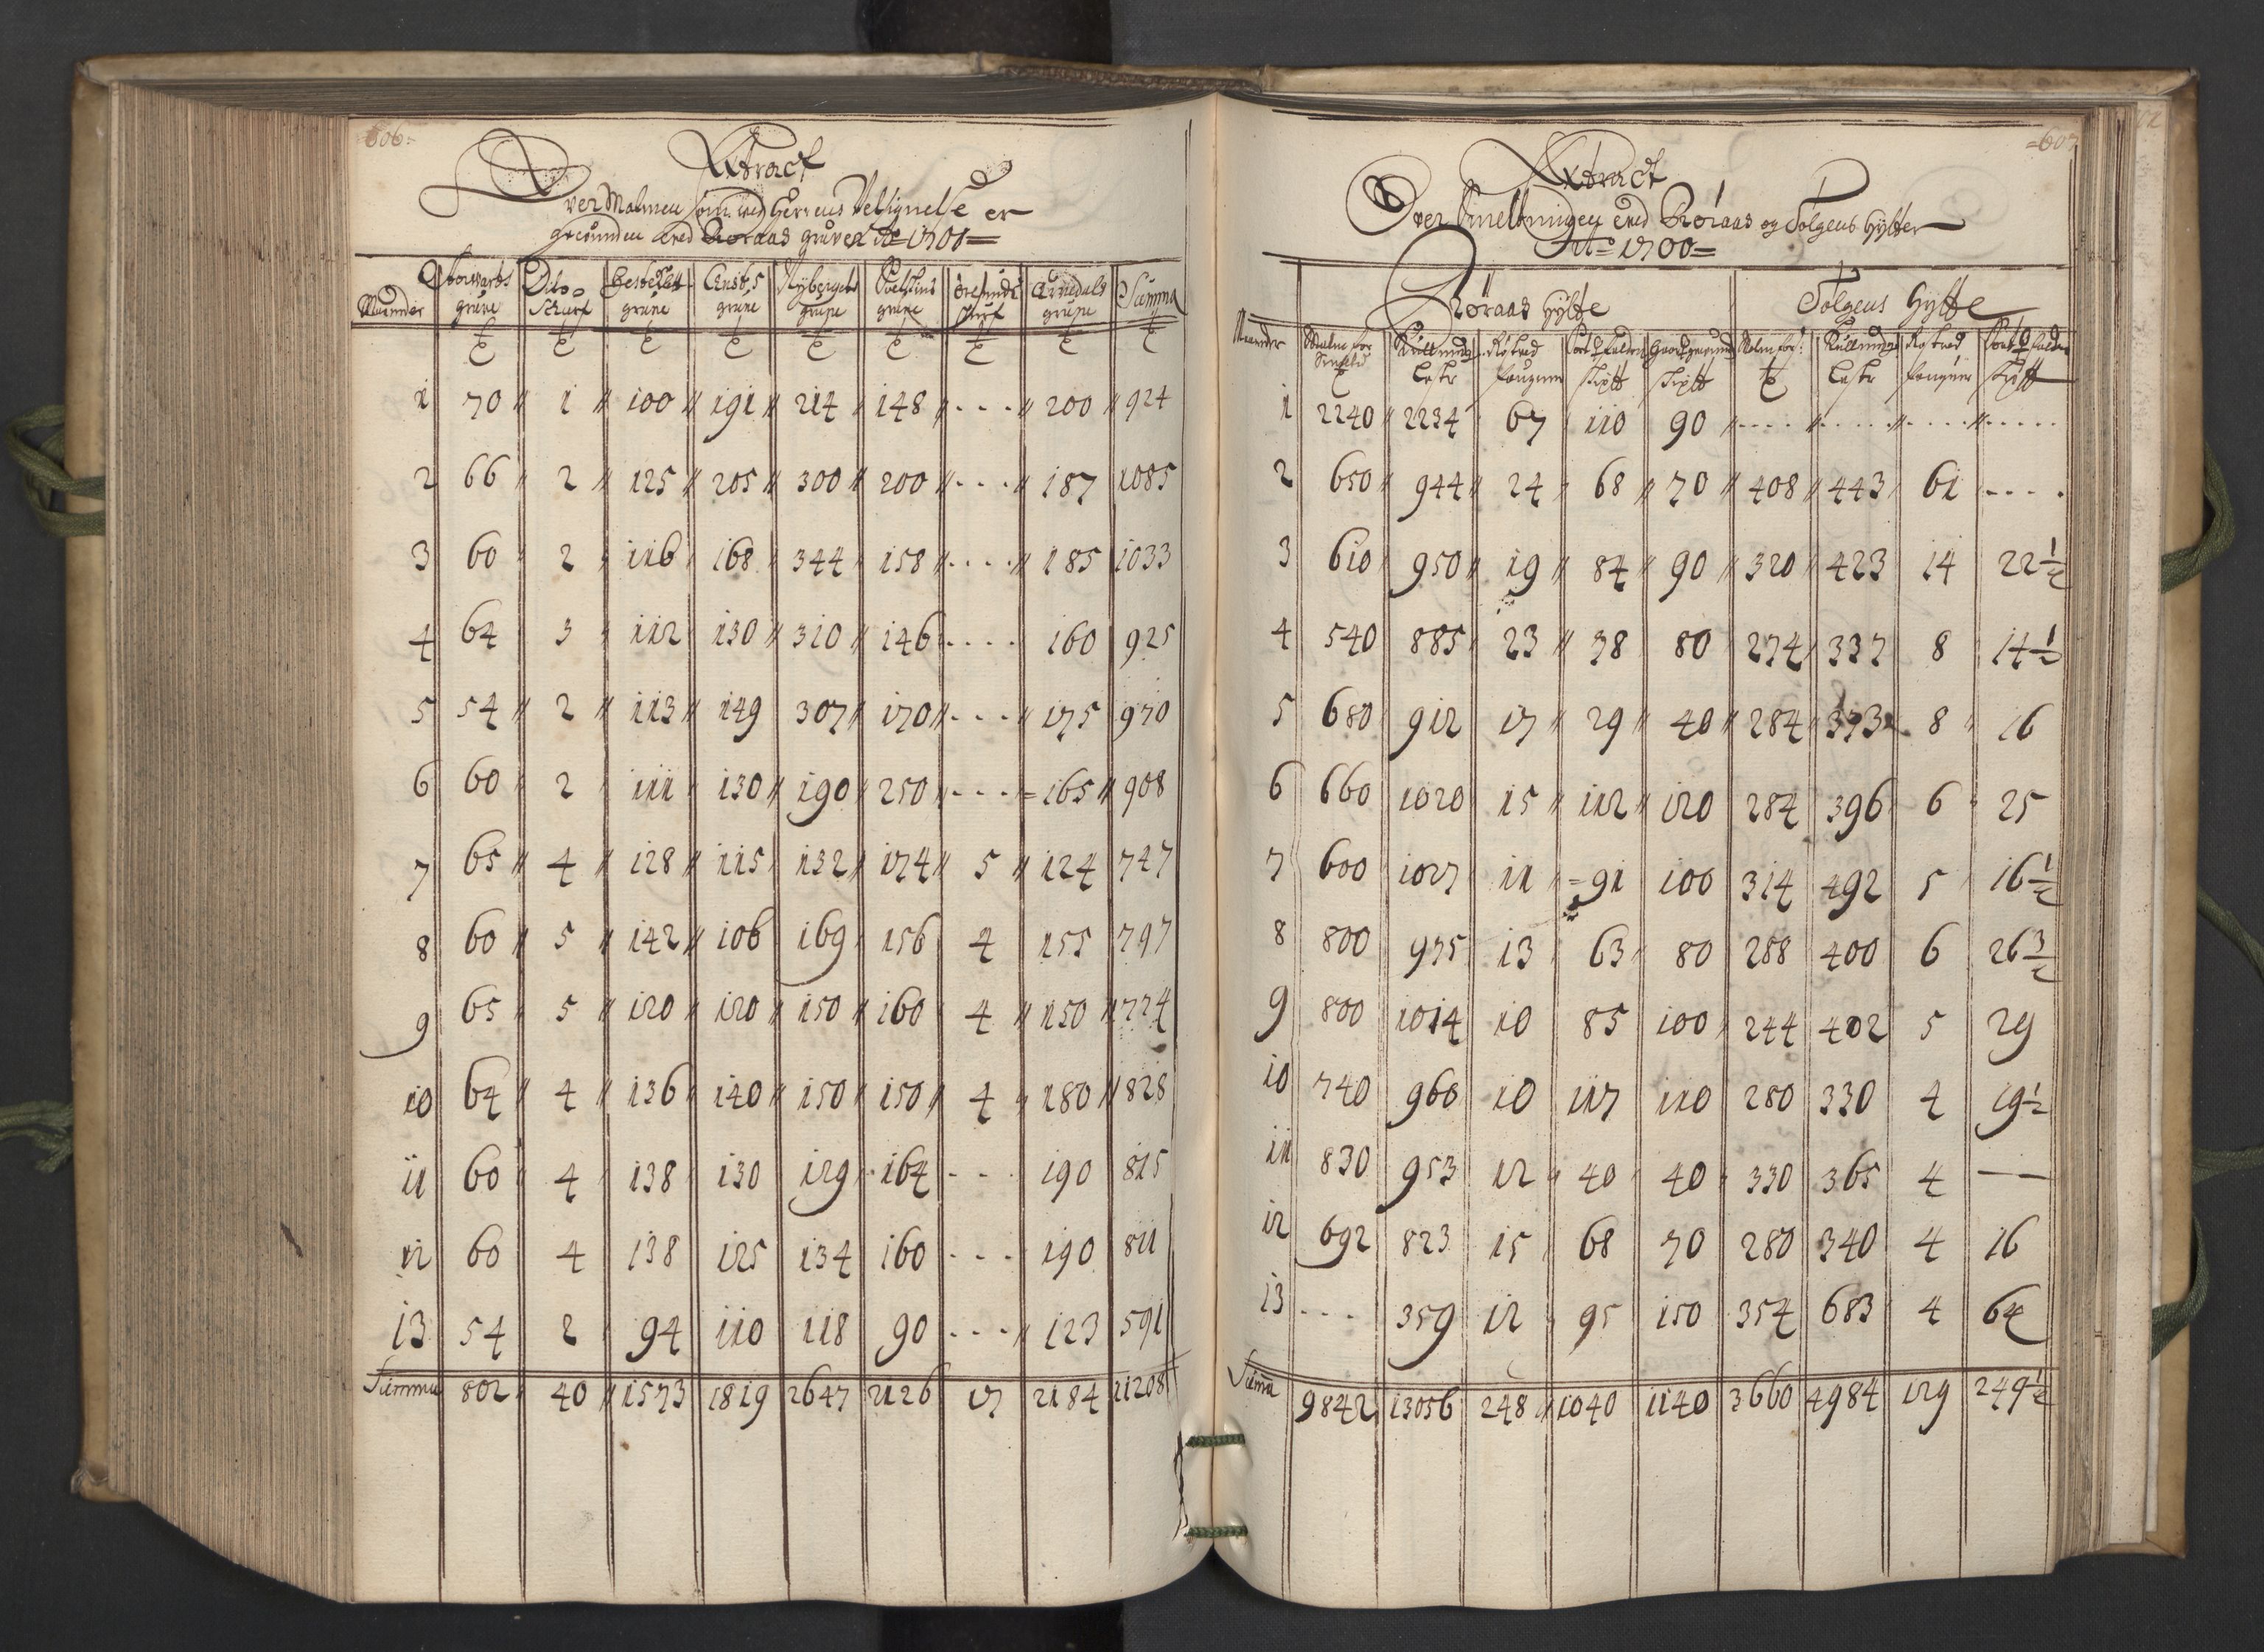 606
Extract
Over Malmen som ved Herrens Velsignelse er
gevunden ved Røraas gruver Ao 1701
Maaneder Storvarts grube Dito Schurf grube Christ: 5 grube Nybergets grube grube Schurf Arvedals grube Summa
1 70 1 100 191 214 148 - - - 200 924
2 66 2 125 205 300 200 - - - 187 1085
3 60 2 116 168 344 158 - - - 185 1033
4 64 3 112 130 310 146 - - - 160 925
5 54 2 113 149 307 170 - - - 175 970
6 60 2 111 130 190 250 - - - 165 908
7 65 4 128 115 132 174 5 124 747
8 60 5 142 106 169 156 4 155 797
9 65 5 120 120 150 160 4 150 774
10 64 4 136 140 150 150 4 180 828
11 60 4 138 130 129 164 - - 190 815
12 60 4 138 125 134 160 - - - 190 811
13 54 2 94 110 118 90 - - - 123 591
Summa 802 40 1573 1819 2647 2126 17 2184 11208
607
Extract
Over Smeltningen ved Røraas og Tolgens Hytter
Ao 1700
Røraas Hytte Tolgens Hytte
Maaneder Malm for Kull Lester Røstved fougner Malm for Kull Lester Røstved fougner
1 2240 2234 67 110 90 - - - - - - - - - - - -
2 650 944 24 68 70 408 443 61 - - - -
3 610 950 19 84 90 320 423 14 22 1/2
4 540 885 23 78 80 274 337 8 14 1/2
5 680 912 17 29 40 284 373 8 16
6 660 1020 15 112 120 284 396 6 25
7 600 1027 11 91 100 314 492 5 16 1/2
8 800 975 13 63 80 288 400 6 26 3/2
9 800 1014 10 85 100 244 402 5 29
10 740 960 10 117 110 280 330 4 19 1/2
11 830 953 12 40 40 330 365 4 —
12 692 823 15 68 70 280 340 4 16
13 - - - 359 12 95 150 354 683 4 64
Summa 9842 13056 248 1040 1140 3660 4984 129 249 1/2